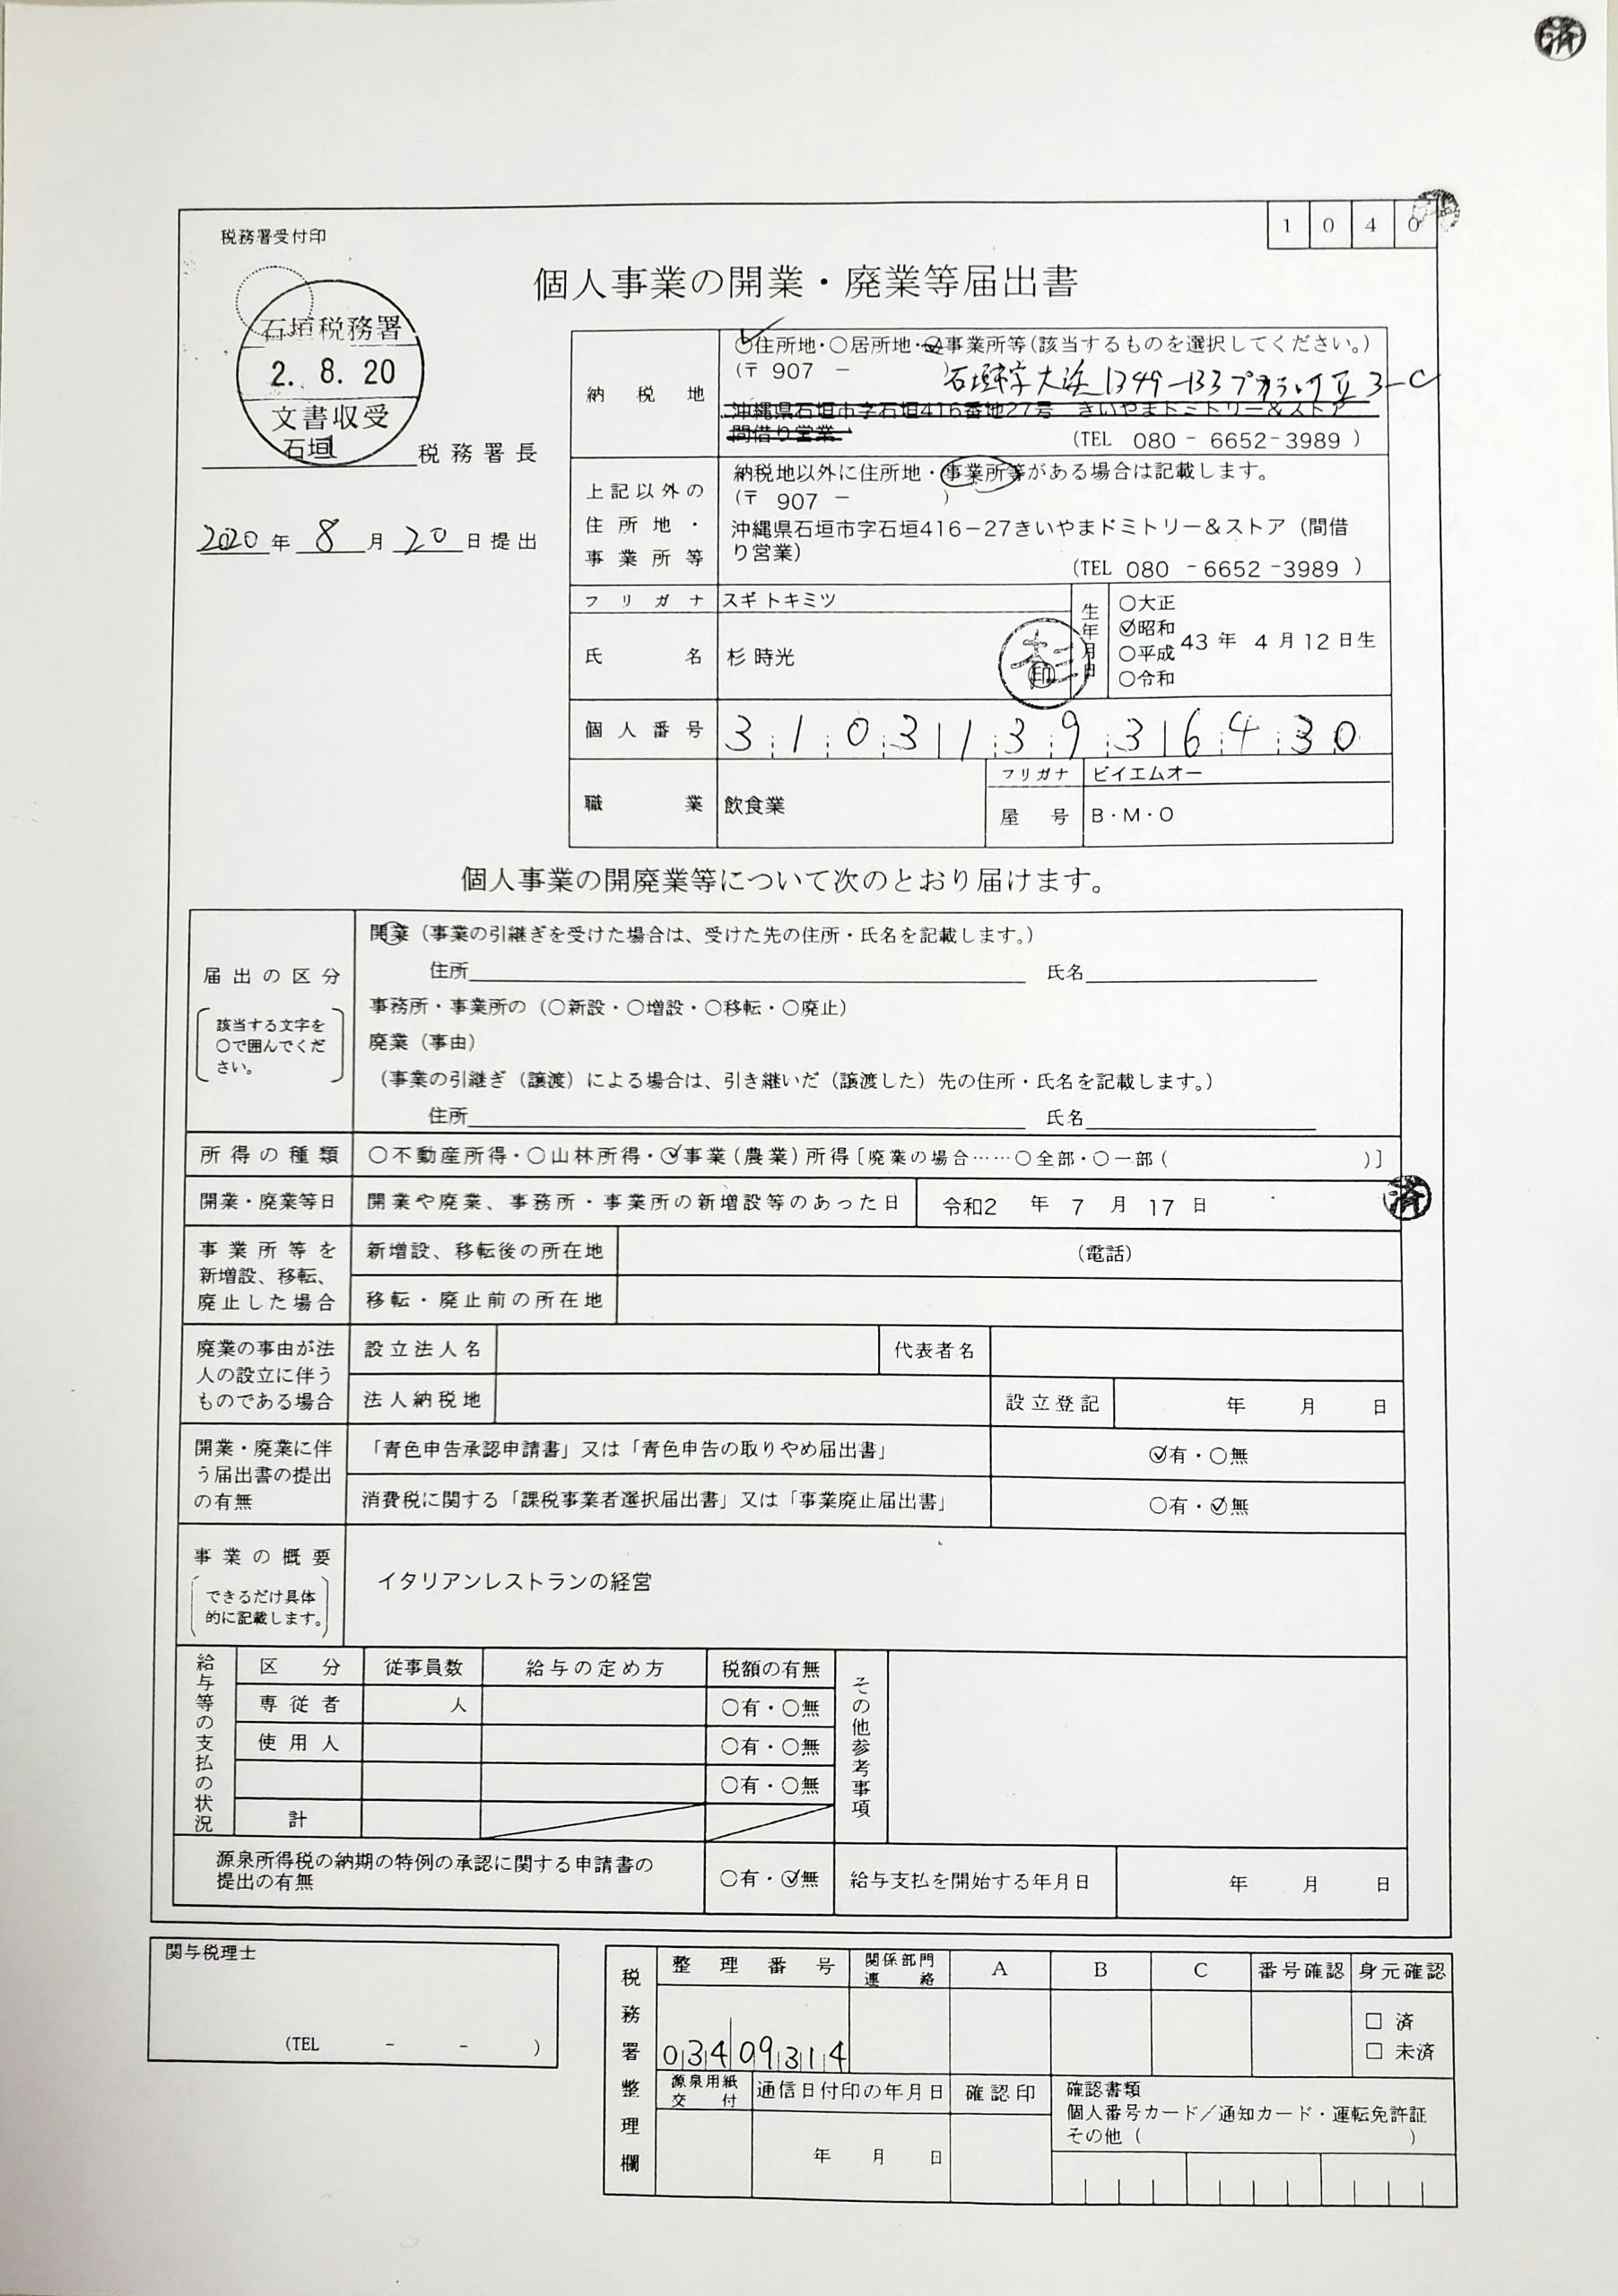 済
税務署受付印
1 0 4 0
個人事業の開業・廃業等届出書
石垣税務署
2. 8. 20
文書収受
石垣 税務署長
2020年 8月 20日提出
納税地
○住所地・○居所地・○事業所等(該当するものを選択してください。)
(〒 907 -
石垣市字大浜1349-133
3-C
沖縄県石垣市字石垣416番地27号 きいやまドミトリー&ストア
間借り営業
(TEL 080 - 6652 - 3989 )
上記以外の住所地・事業所等
納税地以外に住所地・事業所等がある場合は記載します。
(〒 907 - )
沖縄県石垣市字石垣416-27きいやまドミトリー&ストア（間借
り営業）
(TEL 080 - 6652 - 3989 )
フリガナ スギ トキミツ
氏名 杉 時光
印
生年月日
○大正
○昭和
○平成
○令和
43年 4月12日生
個人番号 3 1 0 3 1 1 3 9 3 1 6 4 3 0
職業 飲食業
フリガナ ビイエムオー
屋号 B・M・O
個人事業の開廃業等について次のとおり届けます。
届出の区分
該当する文字を
○で囲んでくだ
さい。
開業（事業の引継ぎを受けた場合は、受けた先の住所・氏名を記載します。）
住所 氏名
事務所・事業所の（○新設・○増設・○移転・○廃止）
廃業（事由）
（事業の引継ぎ（譲渡）による場合は、引き継いだ（譲渡した）先の住所・氏名を記載します。）
住所 氏名
所得の種類 ○不動産所得・○山林所得・○事業(農業)所得[廃業の場合……○全部・○一部( )]
開業・廃業等日 開業や廃業、事務所・事業所の新増設等のあった日 令和2 年 7 月 17 日
済
事業所等を
新増設、移転、
廃止した場合
新増設、移転後の所在地 (電話)
移転・廃止前の所在地
廃業の事由が法
人の設立に伴う
ものである場合
設立法人名 代表者名
法人納税地 設立登記 年 月 日
開業・廃業に伴
う届出書の提出
の有無
「青色申告承認申請書」又は「青色申告の取りやめ届出書」 ○有・○無
消費税に関する「課税事業者選択届出書」又は「事業廃止届出書」 ○有・○無
事業の概要
できるだけ具体
的に記載します。
イタリアンレストランの経営
給与等の支払の状況
区分 従事員数 給与の定め方 税額の有無
専従者 人 ○有・○無
使用人 ○有・○無
○有・○無
計
その他参考事項
源泉所得税の納期の特例の承認に関する申請書の
提出の有無
○有・○無
給与支払を開始する年月日 年 月 日
関与税理士
(TEL - - )
税務署整理欄
整理番号 関係部門連絡 A B C 番号確認 身元確認
0 3 4 0 9 3 1 4
□ 済
□ 未済
源泉用紙交付 通信日付印の年月日 確認印
年 月 日
確認書類
個人番号カード／通知カード・運転免許証
その他( )